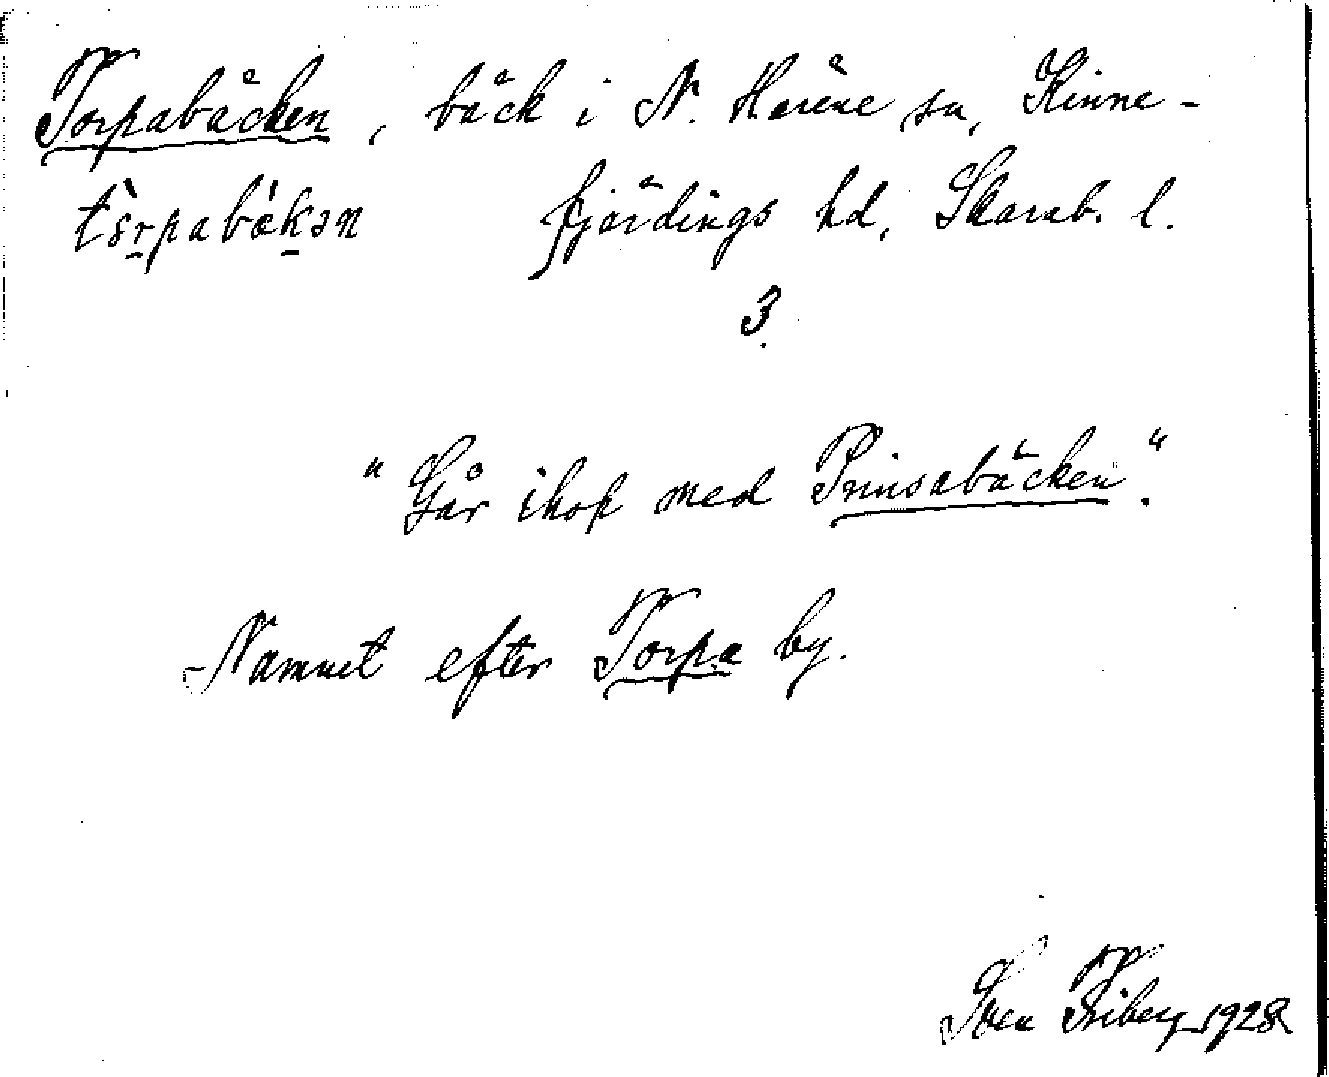 Torpabäcken, bäck i N. Härene sn, Kinne-
fjärdings hd, Skarab. l.
3.
"Går ihop med Prinsabäcken".
Namnet efter Torpa by.
Sven Friberg 1928